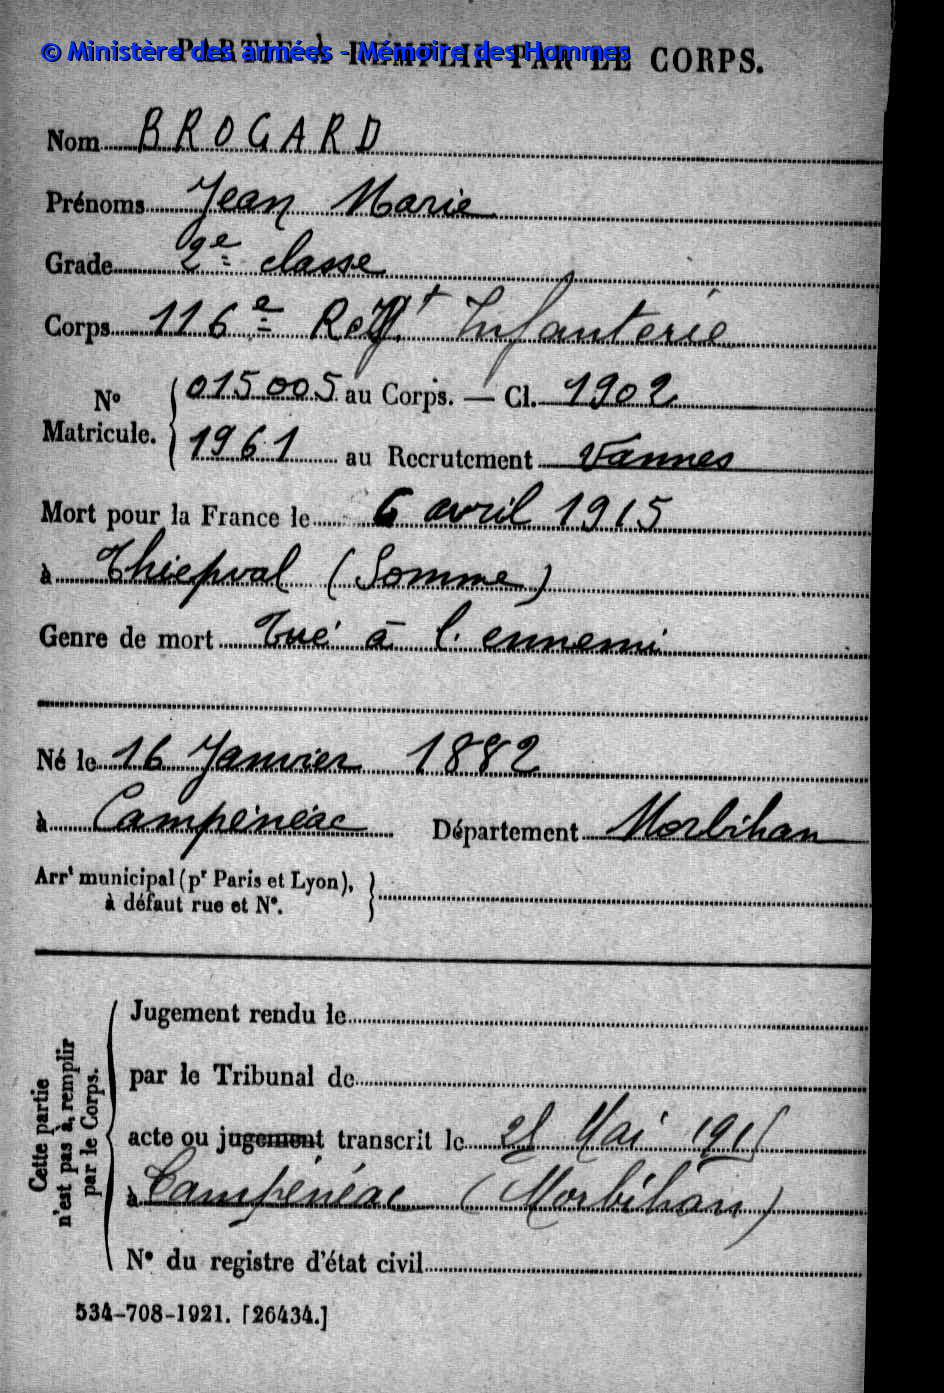 © Ministère des armées - Mémoire des Hommes
PARTIE À REMPLIR PAR LE CORPS.
Nom BROGARD
Prénoms Jean Marie
Grade 2e classe
Corps 116e Regt Infanterie
No Matricule. { 015005 au Corps. — Cl. 1902
1961 au Recrutement Vannes
Mort pour la France le 6 avril 1915
à Thiepval (Somme)
Genre de mort Tué à l'ennemi
Né le 16 Janvier 1882
à Campénéac Département Morbihan
Arrt municipal (pr Paris et Lyon),
à défaut rue et No.
Cette partie
n'est pas à remplir
par le Corps.
Jugement rendu le
par le Tribunal de
acte ou jugement transcrit le Mai 1915
à Campénéac (Morbihan)
No du registre d'état civil
534-708-1921. [26434.]